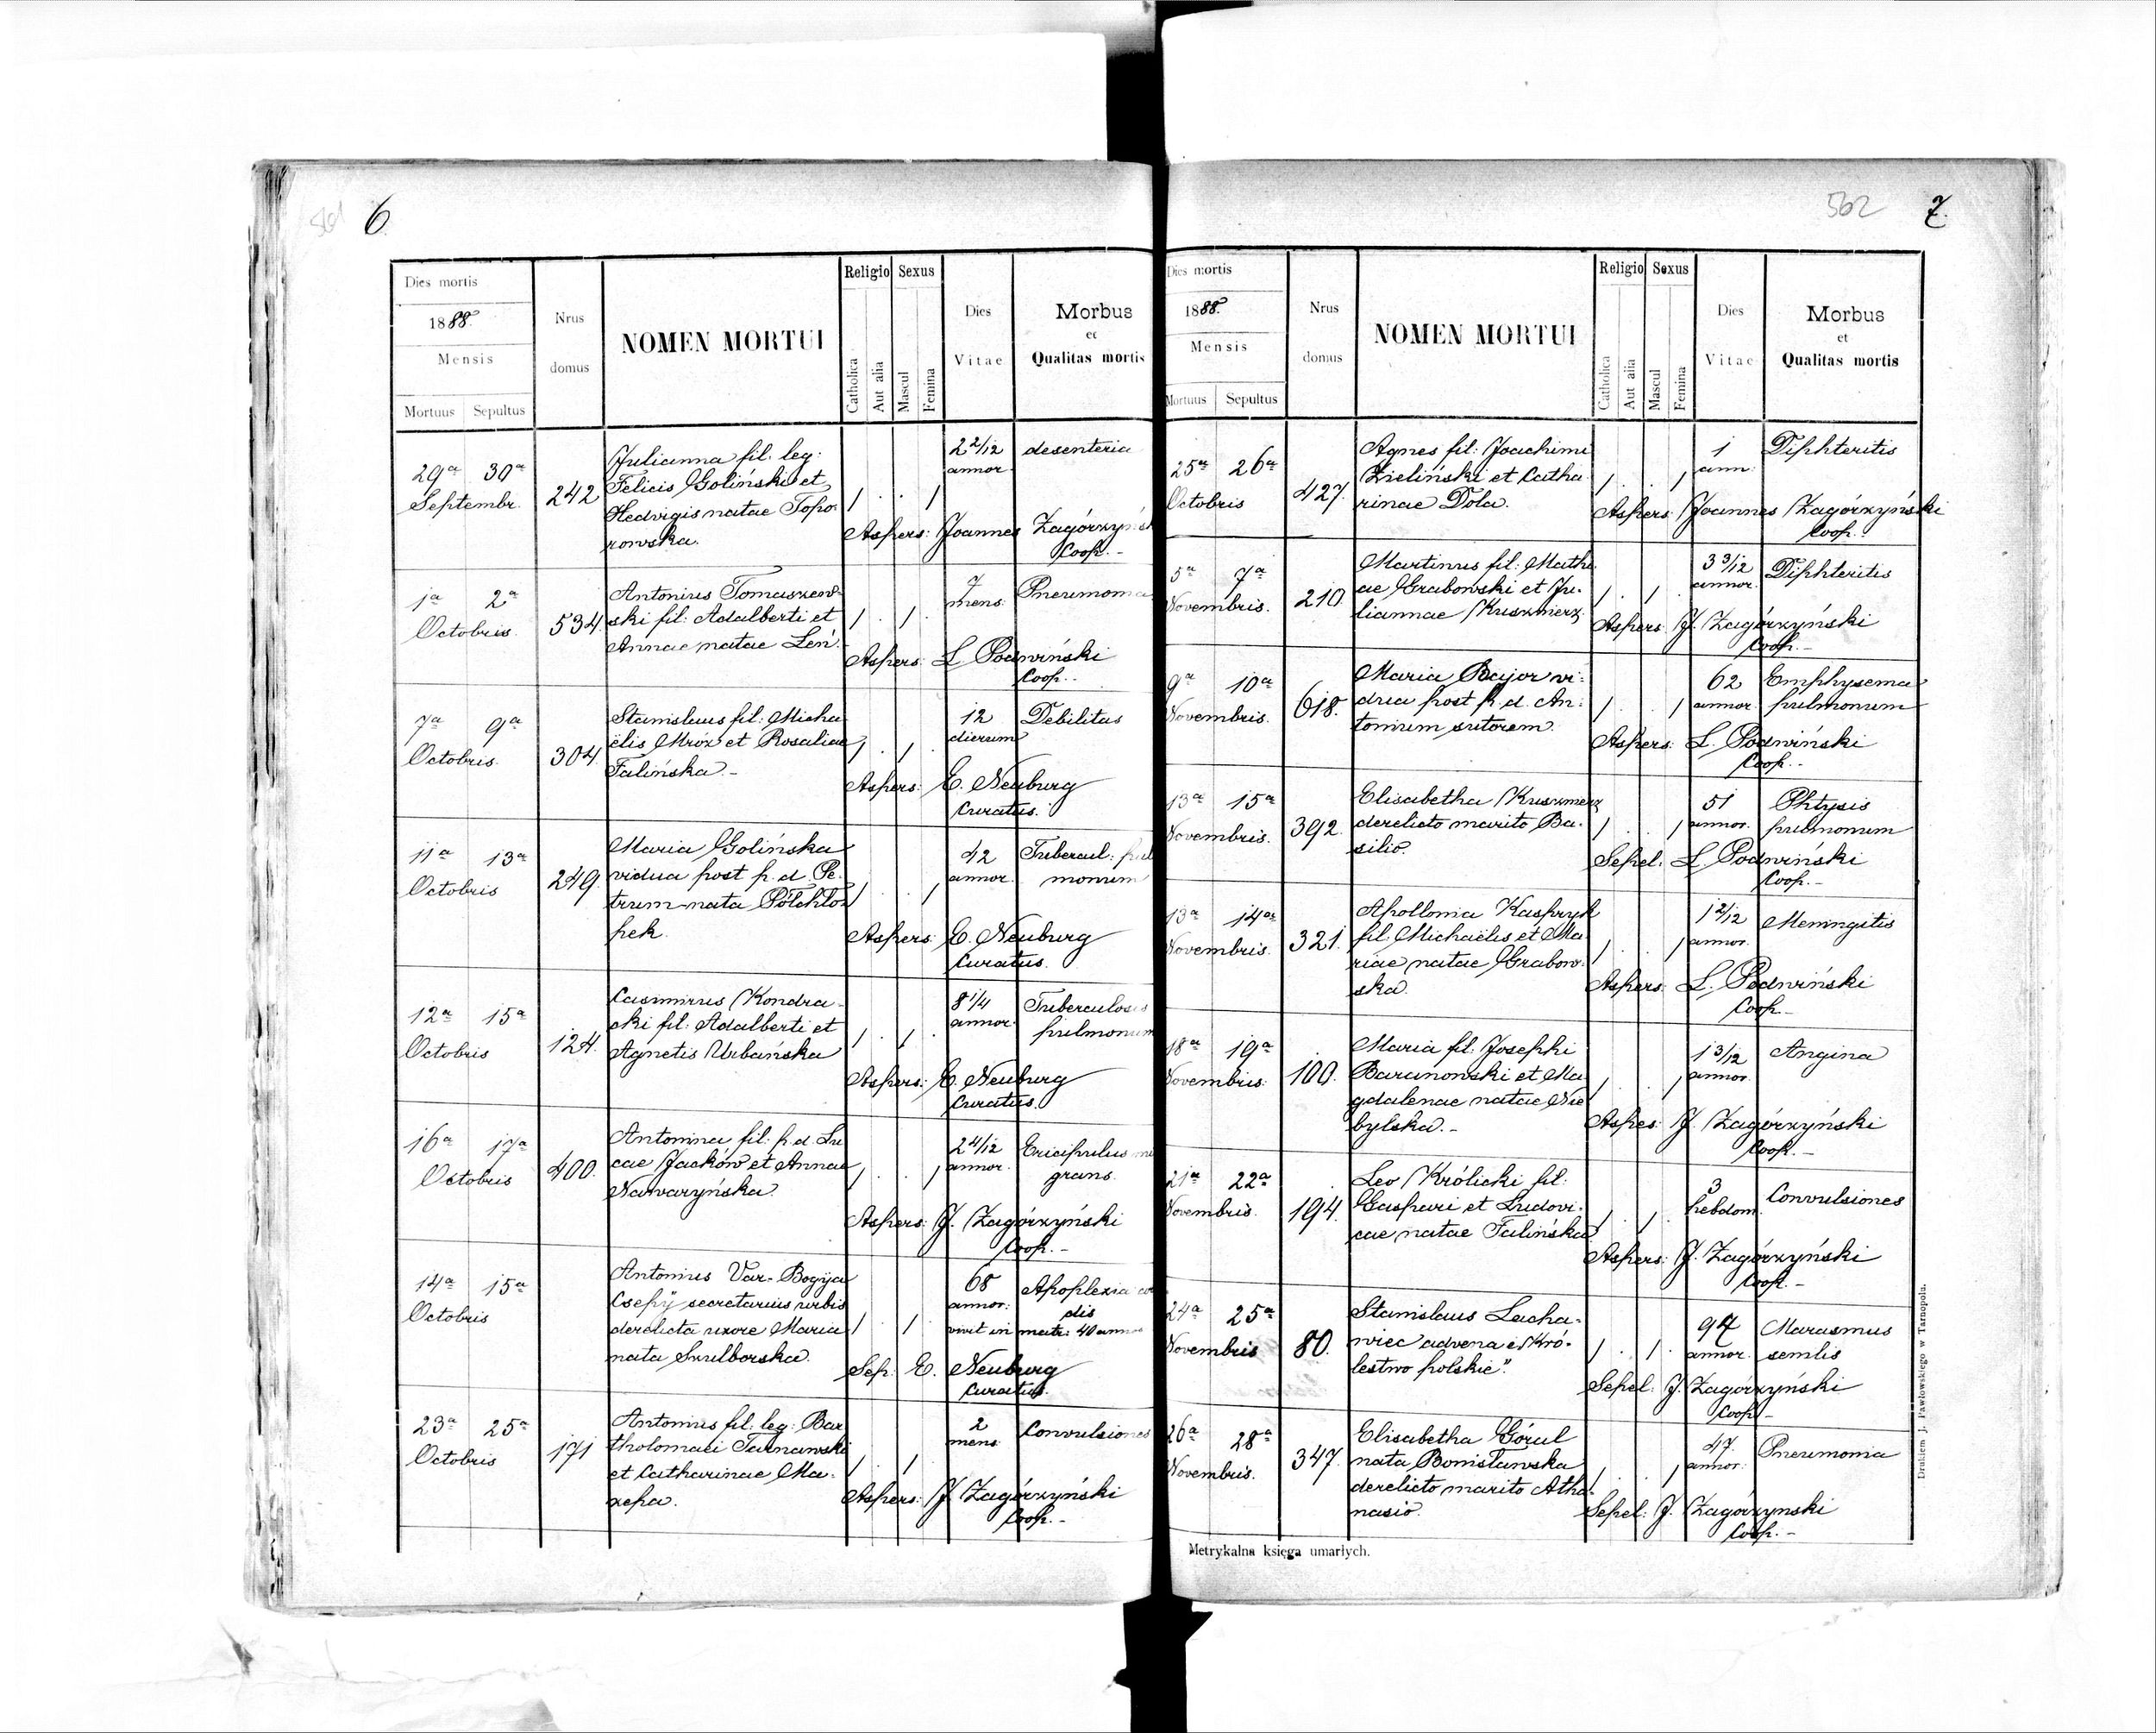 561 6.
Dies mortis
1888.
Mensis
Mortuus Sepultus
Nrus domus
NOMEN MORTUI
Religio Sexus
Catholica Aut alia Mascul Femina
Dies Vitae
Morbus
et
Qualitas mortis
29a 30a
Septembr. 242
Julianna fil. leg.
Felicis Goliński et
Hedvigis natae Topo-
rowska.
2 2/12 annor. desenteria
Aspers: Joannes Zagórzyńsk
Coop. -
1a 2a
Octobris. 534.
Antonius Tomaszew-
ski fil: Adalberti et
Annae natae Leń.
7 mens. Pneumonia
Aspers: L Podwiński
Coop. -
7a 9a
Octobris. 304.
Stanislaus fil: Micha
ëlis Mróz et Rosaliae
Falińska. -
12 dierum Debilitas
Aspers: E. Neuburg
Curatus.
11a 13a
Octobris 249.
Maria Golińska
vidua post p. d. Pe-
trum nata Półchło-
pek.
42 annor. Tubercul: pul
monum
Aspers: E. Neuburg
Curatus.
12a 15a
Octobris 124.
Casimirus Kondra-
cki fil: Adalberti et
Agnetis Urbańska
8 1/4 annor. Tuberculosis
pulmonum
Aspers: E. Neuburg
Curatus.
16a 17a
Octobris 400.
Antonina fil: p. d. Lu
cae Jacków et Annae
Nawaryńska.
2 4/12 annor. Ericipulus mi
grans.
Aspers: J. Zagórzyński
Coop. -
14a 15a
Octobris
Antonius Var-Bogÿai
Csepÿ secretarius urbis
derelicta uxore Maria
nata Szulborska.
68 annor: Apoplexia co
dis
vixit in matr: 40 annos
Sep: E. Neuburg
Curatus.
23a 25a
Octobris 171
Antonius fil: leg: Bar
tholomaei Tarnawski
et Catharinae Ma-
zepa.
2 mens. Convulsiones
Aspers: J. Zagórzyński
Coop. -
562 7.
Dies mortis
1888.
Mensis
Mortuus Sepultus
Nrus domus
NOMEN MORTUI
Religio Sexus
Catholica Aut alia Mascul Femina
Dies Vitae
Morbus
et
Qualitas mortis
25a 26a
Octobris 427.
Agnes fil: Joachimi
Zieliński et Catha
rinae Dola.
1 ann. Diphteritis
Aspers: Joannes Zagórzyński
Coop. -
5a 7a
Novembris. 210.
Martinus fil: Mathi
ae Grabowski et Ju-
liannae Kuszmierz
3 3/12 annor. Diphteritis
Aspers: J. Zagórzyński
Coop. -
9a 10a
Novembris. 618.
Maria Bajor vi-
dua post p. d. An-
tonium sutorem.
62 annor. Emphysema
pulmonum
Aspers: L. Podwiński
Coop. -
13a 15a
Novembris. 392.
Elisabetha Kuszmierz
derelicto marito Ba-
silio.
51 annor. Phtysis
pulmonum
Sepel: L. Podwiński
Coop. -
13a 14a
Novembris. 321.
Apollonia Kaspryk
fil: Michaëlis et Ma
riae natae Grabow-
ska.
1 2/12 annor. Meningitis
Aspers: L. Podwiński
Coop. -
18a 19a
Novembris. 100.
Maria fil: Josephi
Baranowski et Ma
gdalenae natae Nie
bylska. -
1 3/12 annor. Angina
Aspers: J. Zagórzyński
Coop. -
21a 22a
Novembris. 194.
Leo Królicki fil:
Gaspari et Ludovi-
cae natae Falińska
3 hebdom. Convulsiones
Aspers: J. Zagórzyński
Coop. -
24a 25a
Novembris 80.
Stanislaus Lacha-
wiec advena e "Kró-
lestwo polskie".
annor. Marasmus
senilis
Sepel: J. Zagórzyński
Coop. -
26a 28a
Novembris. 347.
Elisabetha Góral
nata Bonisławska
derelicto marito Atha-
nasio.
47. annor. Pneumonia
Sepel: J. Zagórzynski
Coop. -
Metrykalna księga umarłych.
Drukiem J. Pawłowskiego w Tarnopolu.